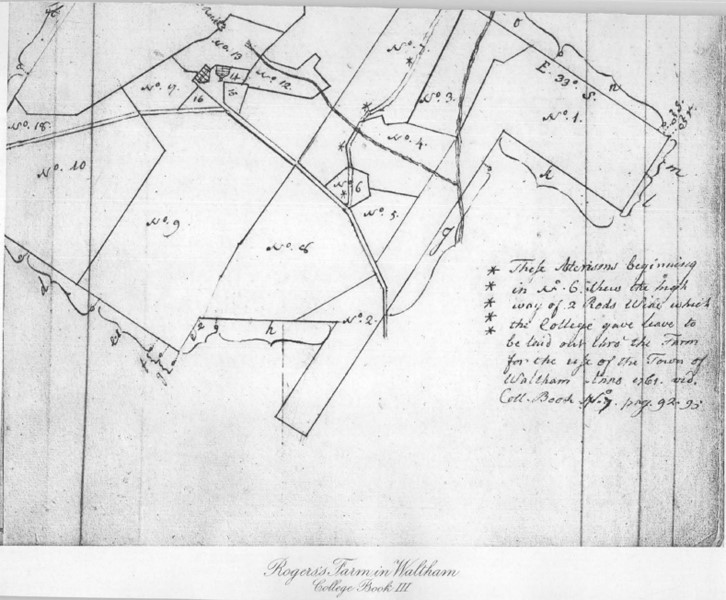 No. 13
No. 12.
No. 17.
14
16
15
No. 18.
No. 10
No. 9
No. 8
No. 7.
No. 3.
No. 4.
No. 6
No. 5.
No. 2.
E. 33°. S.
No. 1.
o
n
m
l
k
h
g
* These Asterisms beginning
* in No. 6. shew the high
* way of 2 Rods Wide which
* the College gave leave to
* be laid out thro' the Farm
for the use of the Town of
Waltham Anno 1761. vid.
Coll. Book No. 7. pag. 92. 93
Rogers's Farm in Waltham
College Book III